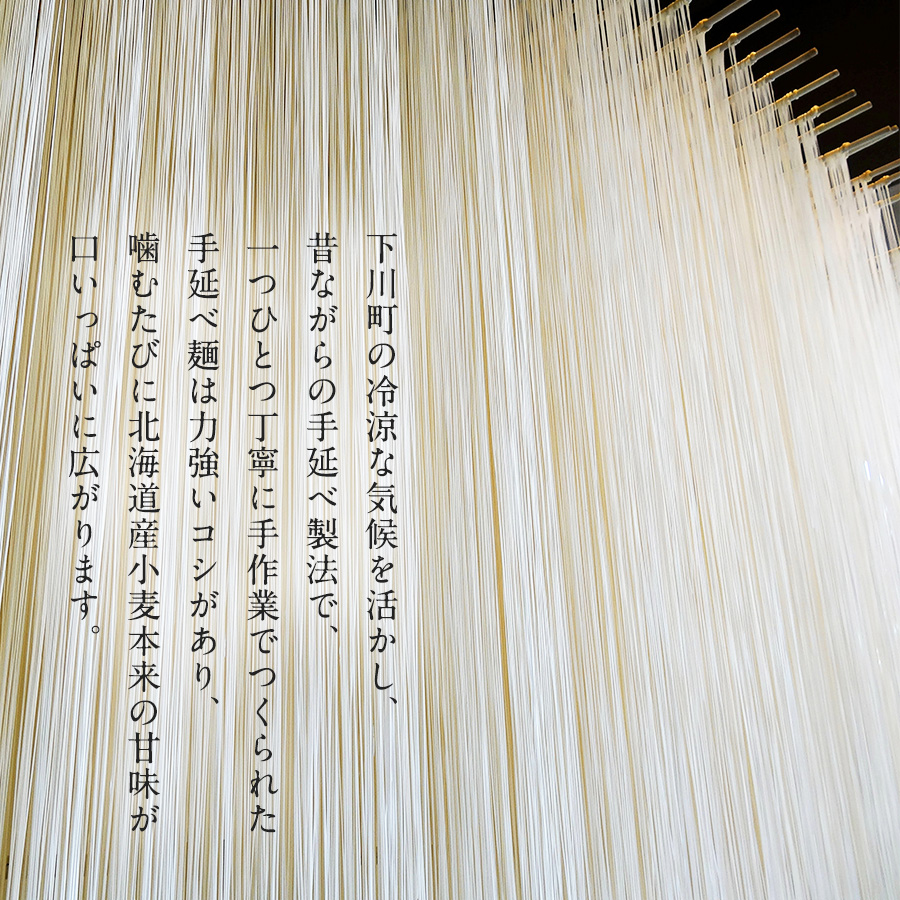 下川町の冷涼な気候を活かし、
昔ながらの手延べ製法で、
一つひとつ丁寧に手作業でつくられた
手延べ麺は力強いコシがあり、
噛むたびに北海道産小麦本来の甘味が
口いっぱいに広がります。